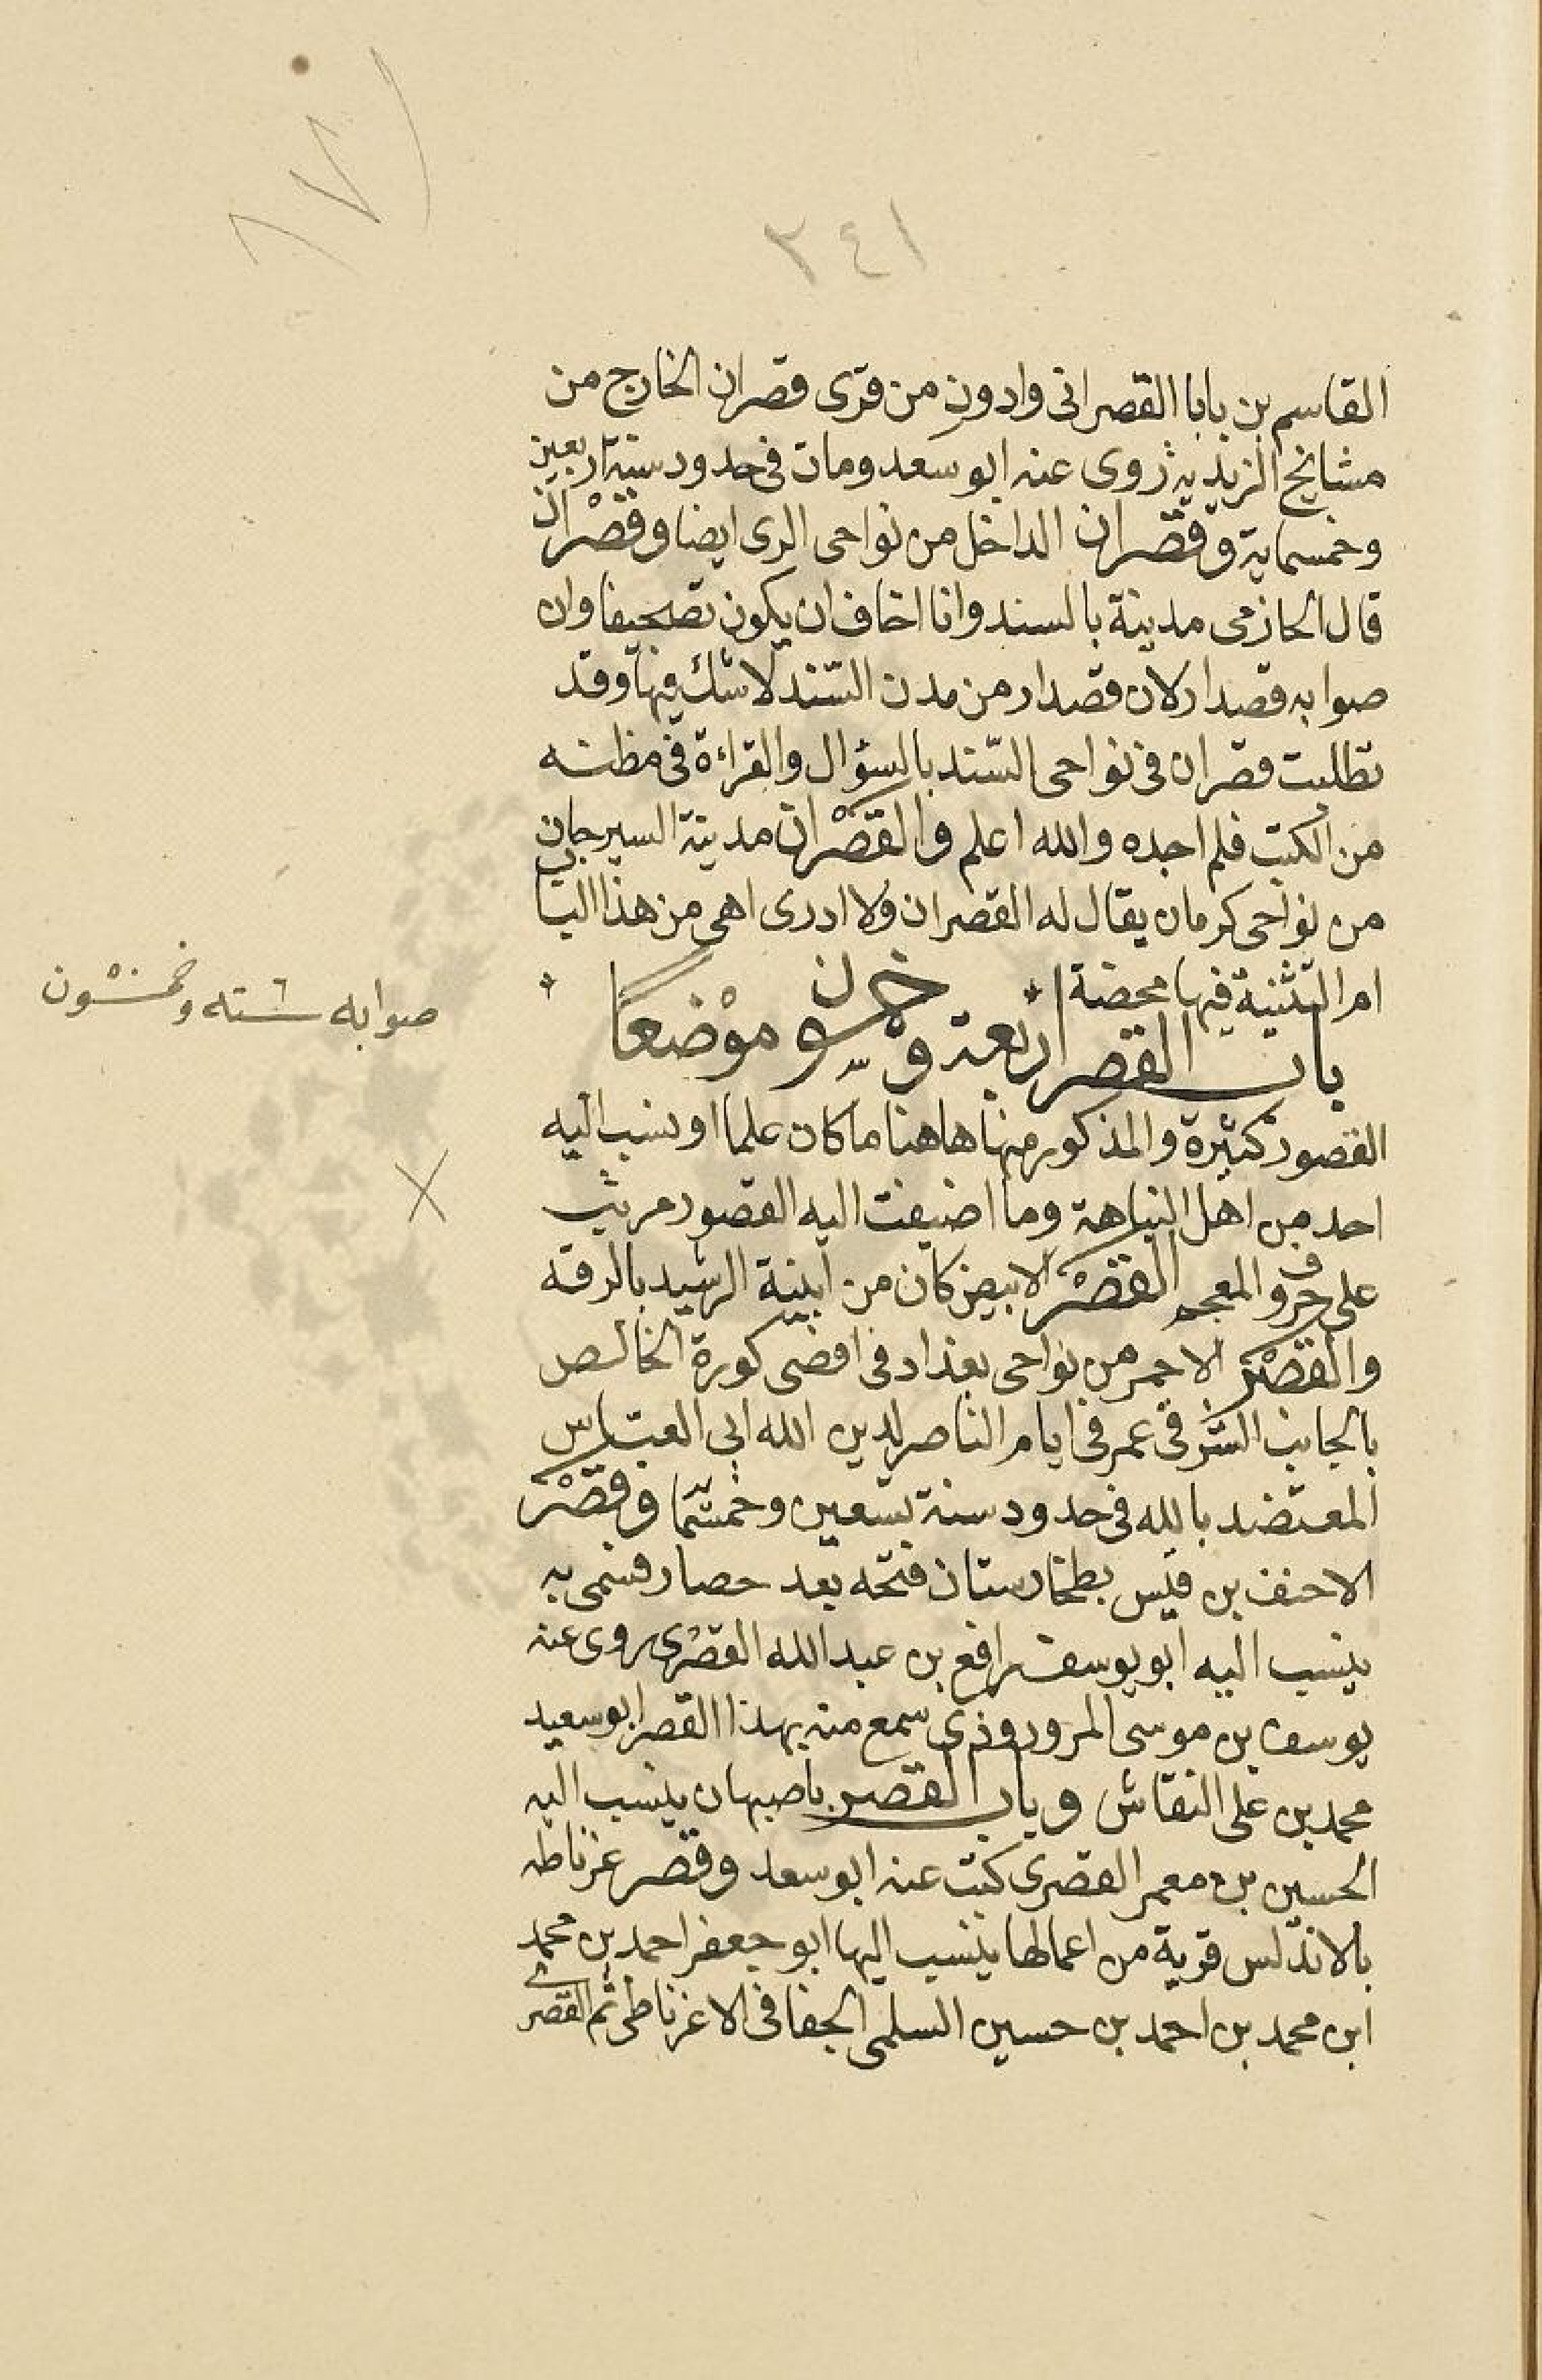 ٣٤١
القاسم بن بابا القصرانى وادون من قرى قصران الخارج من
مشايخ الزيديه روى عنه ابو سعد ومات فى حدود سنة اربعين
وخمسماية وقصران الداخل من نواحى الرى ايضا وقصْران
قال الحازمى مدينة بالسند وانا اخاف ان يكون تصحيفا وان
صوابه قصدار لان قصدار من مدن السّند لا شك فيها وقد
تطلبت قصران فى نواحى السّند بالسؤال والقراءة فى مظنه
من الكتب فلم اجده والله اعلم والقصْران مدينة السيرجان
من نواحى كرمان يقال له القصران ولا ادرى اهى من هذا الباب
ام التثنية فيها محضة
باب القصر اربعة وخمسون موْضعًا
صوابه ستته وخمسْون
القصور كثيرة والمذكور منها هاهنا ما كان علما او نسب اليه
احد من اهل النباهة وما اضيفت اليه القصور مرتب
على حروف المعجم القصْر الابيض كان من ابنية الرشيد بالرقه
والقصْر الاحمر من نواحى بغداد فى اقصى كورة الخالص
بالجانب الشرقى عمر فى ايام الناصر لدين الله ابى العباس
المعتضد بالله فى حدود سنة تسعين وخمسما وقصْر
الاحنف بن قيس بطخارستان فتحه بعد حصار فسمى به
ينسب اليه ابو يوسف رافع بن عبد الله القصْرى روى عنه
يوسف بن موسى المروروذى سمع منه بهذا القصر ابو سعيد
محمد بن على النقاش وباب القصر باصبهان ينسب اليه
الحسين بن معمر القصرى كتب عنه ابو سعد وقصر غرناطه
بالاندلس قرية من اعمالها ينسب اليها ابو جعفر احمد بن محمد
ابن محمد بن احمد بن حسين السلمى الجفافى الاغرناطى ثم القصرى